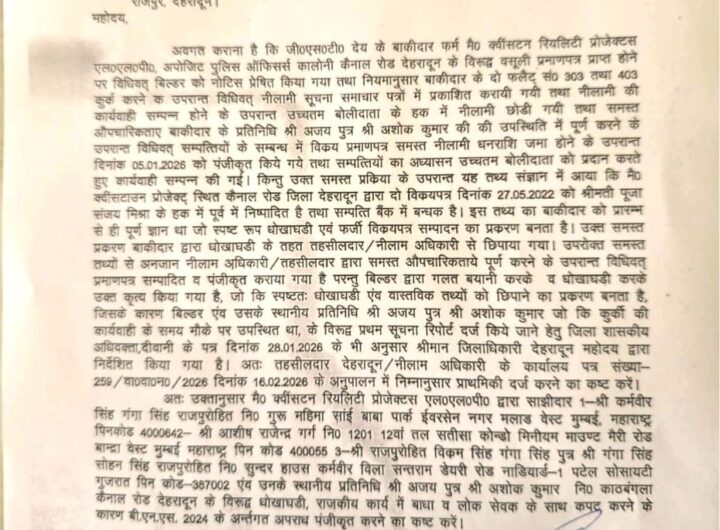 राजपुर, देहरादून।
महोदय,
अवगत कराना है कि जी०एस०टी० देय के बाकीदार फर्म मै० क्वींसटन रियलिटी प्रोजेक्टस
एल०एल०पी०, अपोजिट पुलिस ऑफिसर्स कालोनी कैनाल रोड देहरादून के विरूद्ध वसूली प्रमाणपत्र प्राप्त होने
पर विधिवत् बिल्डर को नोटिस प्रेषित किया गया तथा नियमानुसार बाकीदार के दो फलैट सं0 303 तथा 403
कुर्क करने क उपरान्त विधिवत् नीलामी सूचना समाचार पत्रों में प्रकाशित करायी गयी तथा नीलामी की
कार्यवाही सम्पन्न होने के उपरान्त उच्चतम बोलीदाता के हक में नीलामी छोडी गयी तथा समस्त
औपचारिकताए बाकीदार के प्रतिनिधि श्री अजय पुत्र श्री अशोक कुमार की की उपस्थिति में पूर्ण करने के
उपरान्त विधिवत् सम्पत्तियों के सम्बन्ध में विकय प्रमाणपत्र समस्त नीलामी धनराशि जमा होने के उपरान्त
दिनांक 05.01.2026 को पंजीकृत किये गये तथा सम्पत्तियों का अध्यासन उच्चतम बोलीदाता को प्रदान करते
हुए कार्यवाही सम्पन्न की गई। किन्तु उक्त समस्त प्रकिया के उपरान्त यह तथ्य संज्ञान में आया कि मै०
क्वींसटाउन प्रोजेक्ट् स्थित कैनाल रोड जिला देहरादून द्वारा दो विकयपत्र दिनांक 27.05.2022 को श्रीमती पूजा
संजय मिश्रा के हक में पूर्व में निष्पादित है तथा सम्पति बैंक में बन्धक है। इस तथ्य का बाकीदार को प्रारम्भ
से ही पूर्ण ज्ञान था जो स्पष्ट रूप धोखाघडी एवं फर्जी विकयपत्र सम्पादन का प्रकरण बनता है। उक्त समस्त
प्रकरण बाकीदार द्वारा धोखाघडी के तहत तहसीलदार/नीलाम अधिकारी से छिपाया गया। उपरोक्त समस्त
तथ्यों से अनजान नीलाम अधिकारी/तहसीलदार द्वारा समस्त औपचारिकताये पूर्ण करने के उपरान्त विधिवत्
प्रमाणपत्र सम्पादित व पंजीकृत कराया गया है परन्तु बिल्डर द्वारा गलत बयानी करके व धोखाघडी करके
उक्त कृत्य किया गया है, जो कि स्पष्टतः धोखाघडी एंव वास्तविक तथ्यों को छिपाने का प्रकरण बनता है,
जिसके कारण बिल्डर एंव उसके स्थानीय प्रतिनिधि श्री अजय पुत्र श्री अशोक कुमार जो कि कुर्की की
कार्यवाही के समय मौके पर उपस्थित था, के विरूद्ध प्रथम सूचना रिपोर्ट दर्ज किये जाने हेतु जिला शासकीय
अधिवक्ता,दीवानी के पत्र दिनांक 28.01.2026 के भी अनुसार श्रीमान जिलाधिकारी देहरादून महोदय द्वारा
निर्देशित किया गया है। अतः तहसीलदार देहरादून/नीलाम अधिकारी के कार्यालय पत्र संख्या-
259/वा०वा०न०/2026 दिनांक 16.02.2026 के अनुपालन में निम्नानुसार प्राथमिकी दर्ज करने का कष्ट करें।
अतः उक्तानुसार मै० क्वींसटन रियलिटी प्रोजेक्टस एल०एल०पी० द्वारा साझीदार 1–श्री कर्मवीर
सिंह गंगा सिंह राजपुरोहित नि० गुरू महिमा सांई बाबा पार्क ईवरसेन नगर मलाड वेस्ट मुम्बई, महाराष्ट्र
पिनकोड 4000642– श्री आशीष राजेन्द्र गर्ग नि० 1201 12वां तल सतीसा कोन्डो मिनीयम माउण्ट मैरी रोड
बान्द्रा वेस्ट मुम्बई महाराष्ट्र पिन कोड 400055 3–श्री राजपुरोहित विक्रम सिंह गंगा सिंह पुत्र श्री गंगा सिंह
सोहन सिंह राजपुरोहित नि० सुन्दर हाउस कर्मवीर विला सन्तराम डेयरी रोड नाडियार्ड–1 पटेल सोसायटी
गुजरात पिन कोड–387002 एंव उनके स्थानीय प्रतिनिधि श्री अजय पुत्र श्री अशोक कुमार नि० काठबंगला
कैनाल रोड देहरादून के विरूद्ध धोखाघडी, राजकीय कार्य में बाधा व लोक सेवक के साथ कपट करने के
कारण बी.एन.एस. 2024 के अर्न्तगत अपराध पंजीकृत करने का कष्ट करें।